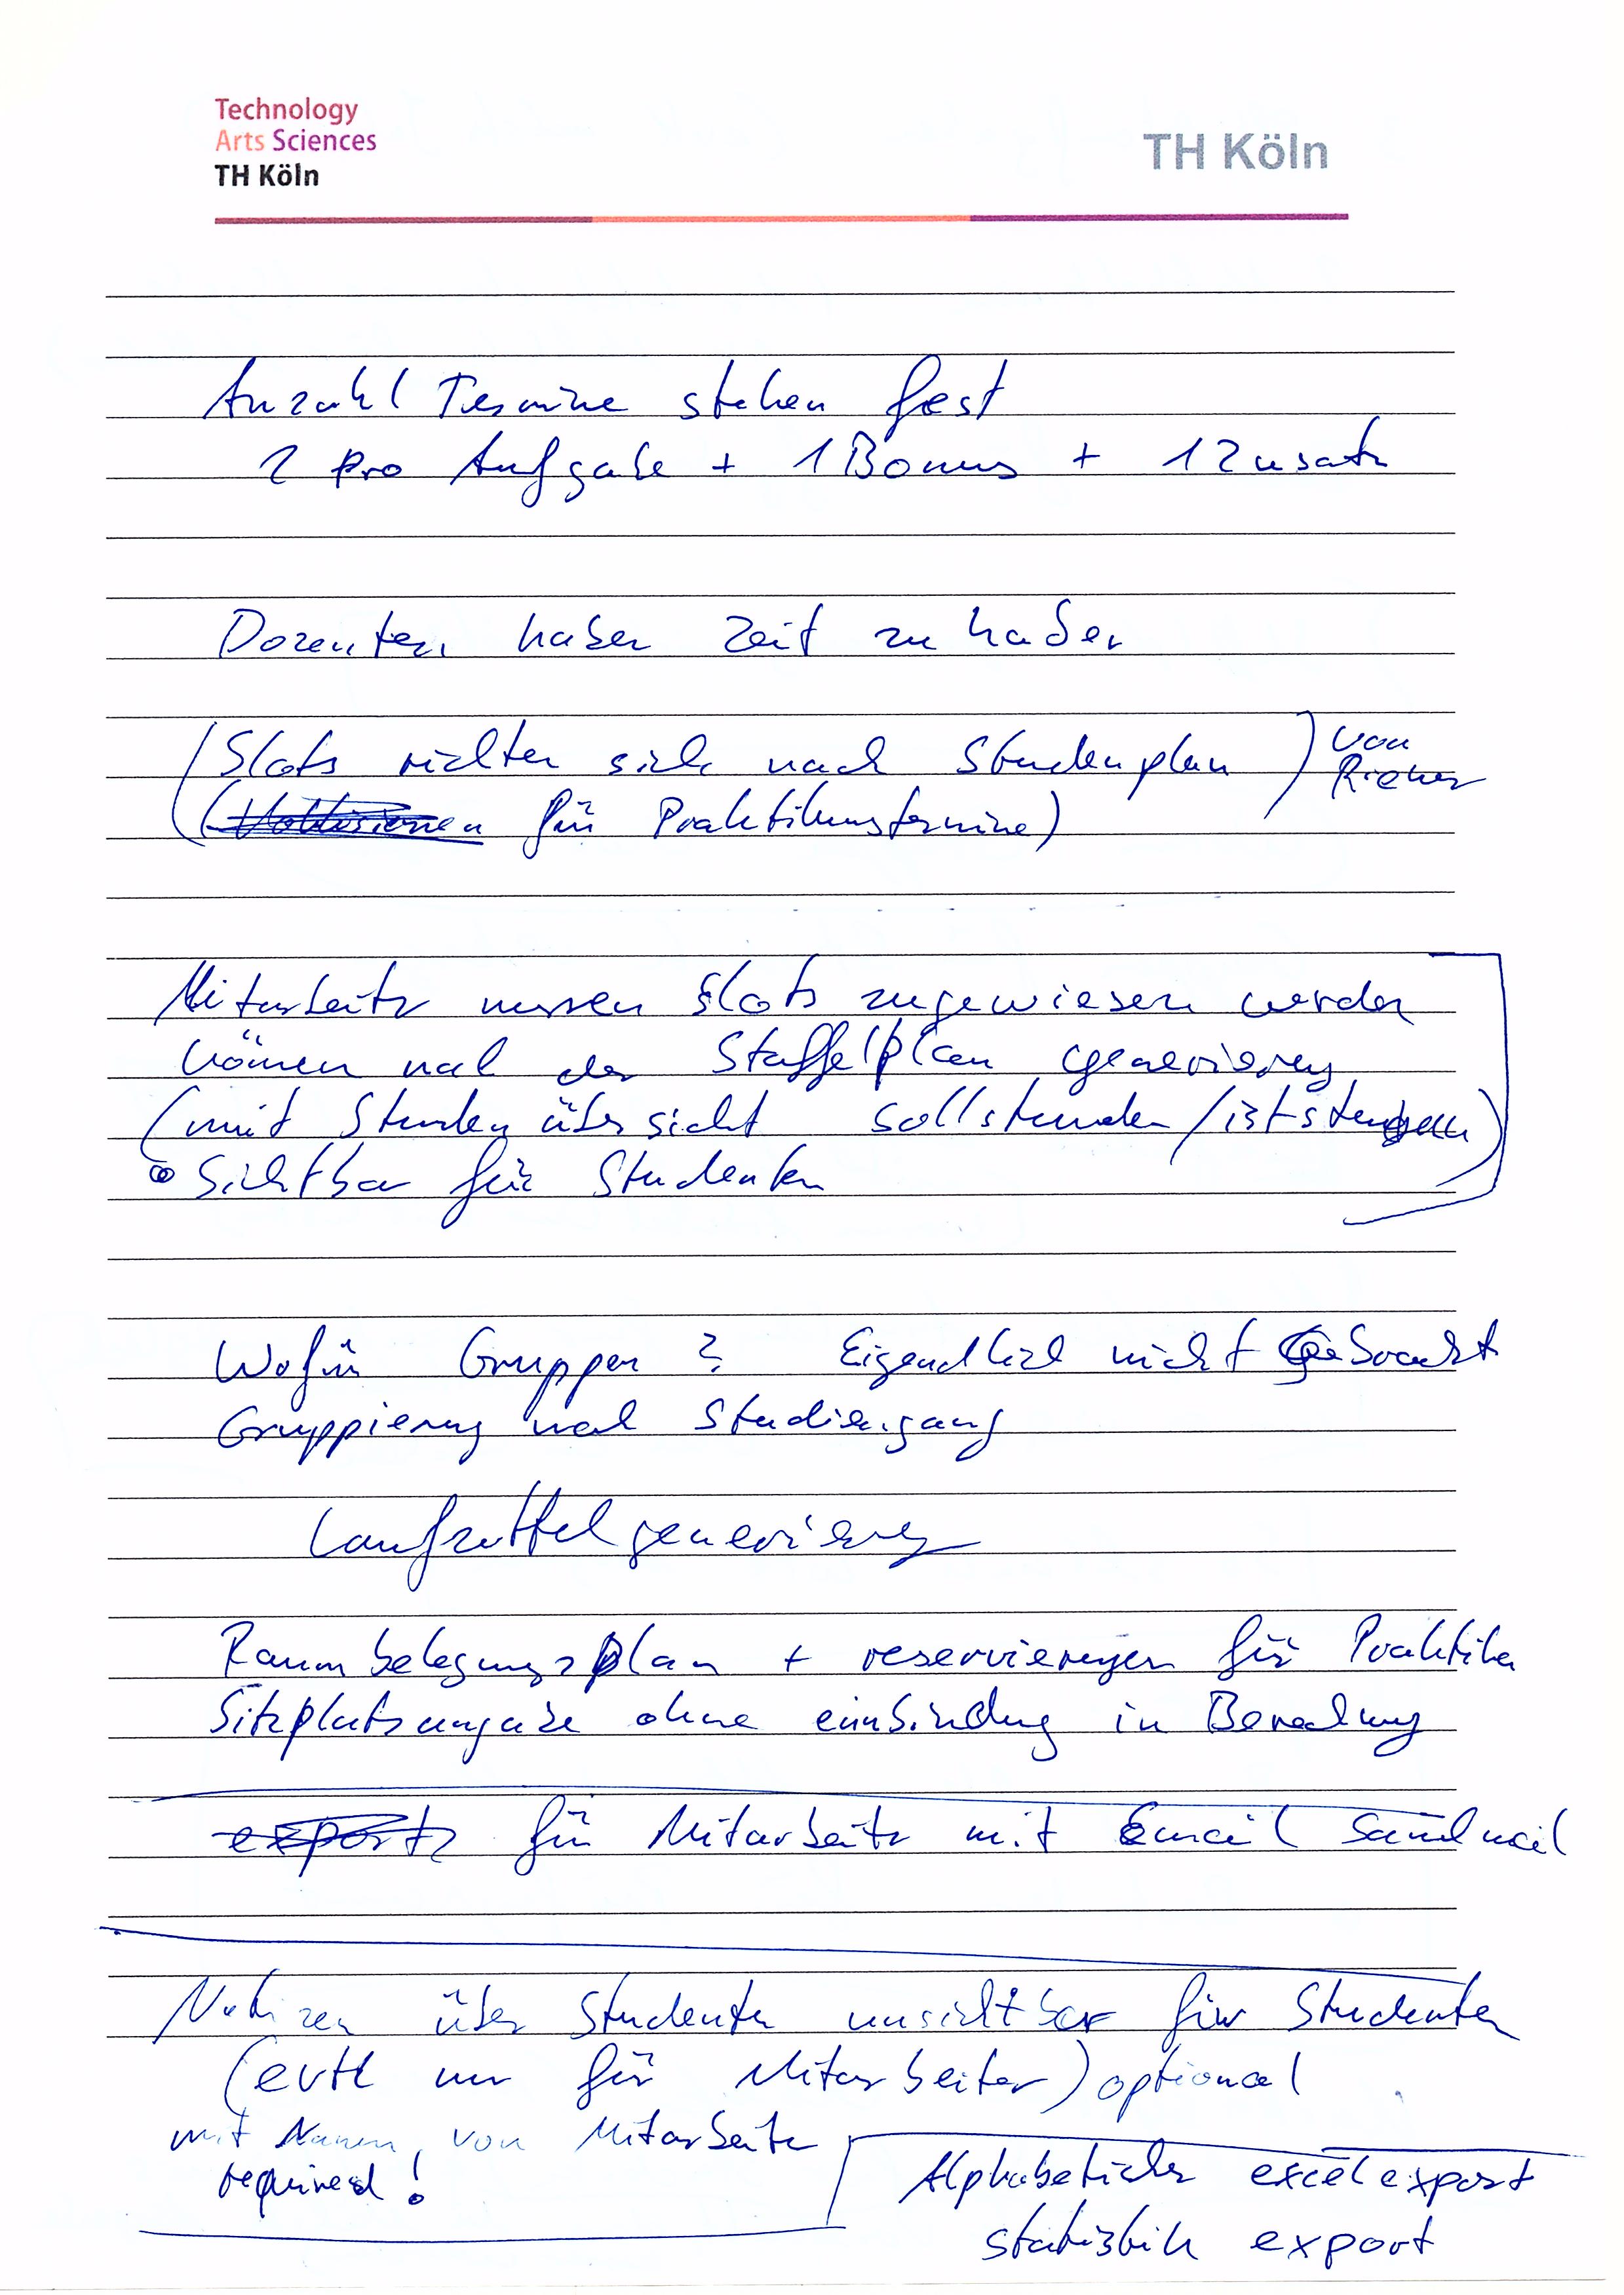 Technology
Arts Sciences
TH Köln
TH Köln
Anzahl Termine stehen fest
2 pro Aufgabe + 1 Bonus + 1 Zusatz
Dozenten haben Zeit zu haben
(Slots richten sich nach Stundenplan) von
( für Praktikumstermine)
Mitarbeiter mussen Slots zugewiesen werden
können nach der Staffelplan generierung
(mit Stundenübersicht sollstunden/iststunden)
Sichtbar für Studenten
Wofür Gruppen? Eigendlich nicht Gebraucht
Gruppierung nach Studiengang
Laufzettelgenerierung
Raumbelegungsplan + reservierungen für Praktika
Sitzplatzangabe ohne einbindung in Berechnung
exports für Mitarbeiter mit Email
Notizen über Studenten unsichtbar für Studenten
(evtl nur für Mitarbeiter) optional
mit Namen von Mitarbeiter
required!
Alphabetischer excel export
statistik export